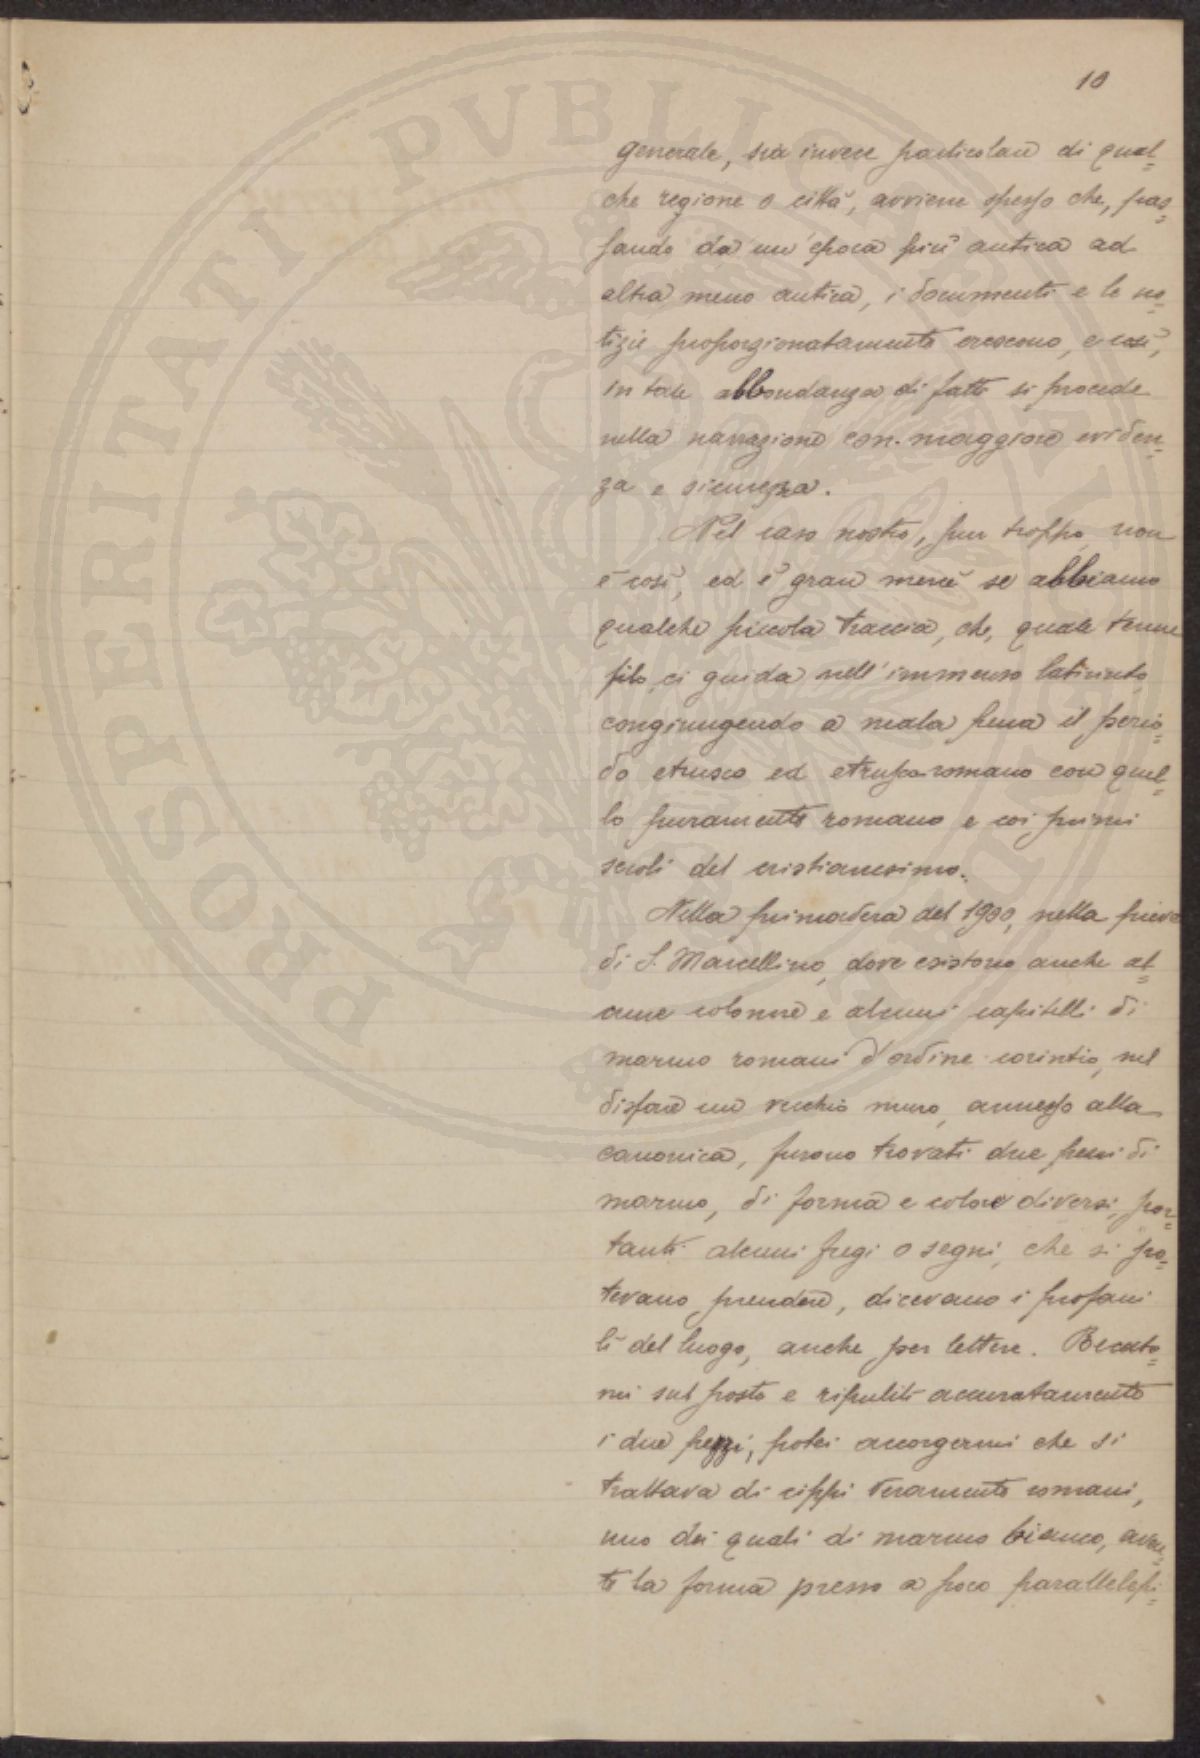 10
generale, sia invece particolare di qual=
che regione o città, avviene spesso che, pas=
sando da un'epoca più antica ad
altra meno antica, i documenti e le no=
tizie proporzionatamente crescono, e così,
in tale abbondanza di fatti si procede
nella narrazione con maggiore eviden=
za e sicurezza.
Nel caso nostro, pur troppo, non
è così, ed è gran mercè se abbiamo
qualche piccola traccia, che, quale tenue
filo, ci guida nell'immenso labirinto,
congiungendo a mala pena il perio=
do etrusco ed etrusco-romano con quel=
lo puramente romano e coi primi
secoli del cristianesimo.
Nella primavera del 1900, nella pieve
di S. Marcellino, dove esistono anche al=
cune colonne e alcuni capitelli di
marmo romani d'ordine corintio, nel
disfare un vecchio muro, annesso alla
canonica, furono trovati due pezzi di
marmo, di forma e colore diversi, por=
tanti alcuni fregi o segni, che si po=
tevano prendere, dicevano i profani
lì del luogo, anche per lettere. Recato=
mi sul posto e ripuliti accuratamente
i due pezzi, potei accorgermi che si
trattava di cippi veramente romani,
uno dei quali di marmo bianco, aven=
te la forma presso a poco parallelepi=
PROSPERITATI PVBLICAE